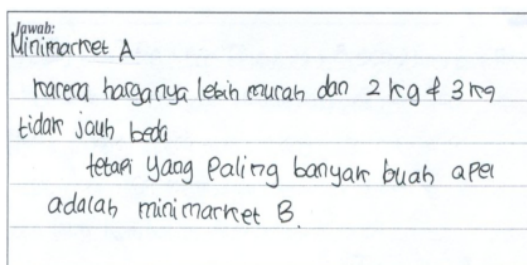 Jawab:
Minimarket A
karena harganya lebih murah dan 2 kg & 3 kg
tidak jauh beda
tetapi yang paling banyak buah apel
adalah minimarket B.